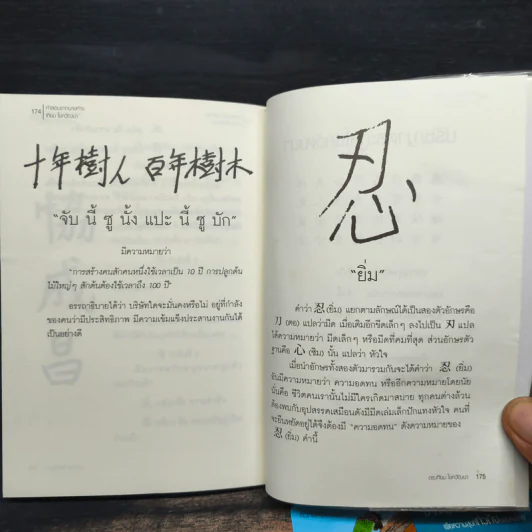 174
คำสอนจากนายห้าง
เทียม โชควัฒนา
十年樹人 百年樹木
"จับ นี้ ซู นั้ง แปะ นี้ ซู บัก"
มีความหมายว่า
"การสร้างคนสักคนหนึ่งใช้เวลาเป็น 10 ปี การปลูกต้น
ไม้ใหญ่ๆ สักต้นต้องใช้เวลาถึง 100 ปี"
อรรถาธิบายได้ว่า บริษัทใดจะมั่นคงหรือไม่ อยู่ที่กำลัง
ของคนว่ามีประสิทธิภาพ มีความเข้มแข็งประสานงานกันได้
เป็นอย่างดี
忍
"ยิ่ม"
คำว่า 忍 (ยิ่ม) แยกตามลักษณ์ได้เป็นสองตัวอักษรคือ
刀 (ตอ) แปลว่ามีด เมื่อเติมอีกขีดเล็กๆ ลงไปเป็น 刃 แปล
ได้ความหมายว่า มีดเล็กๆ หรือมีดที่คมที่สุด ส่วนอักษรตัว
ฐานคือ 心 (ซิม) นั้น แปลว่า หัวใจ
เมื่อนำอักษรทั้งสองตัวมารวมกันจะได้คำว่า 忍 (ยิ่ม)
อันมีความหมายว่า ความอดทน หรืออีกความหมายโดยนัย
นั่นคือ ชีวิตคนเรานั้นไม่มีใครเกิดมาสบาย ทุกคนต่างล้วน
ต้องพบกับอุปสรรคเสมือนดังมีมีดเล่มเล็กปักแทงหัวใจ คนที่
จะยืนหยัดอยู่ได้จึงต้องมี "ความอดทน" ดังความหมายของ
忍 (ยิ่ม) คำนี้
ดร.เทียม โชควัฒนา
175